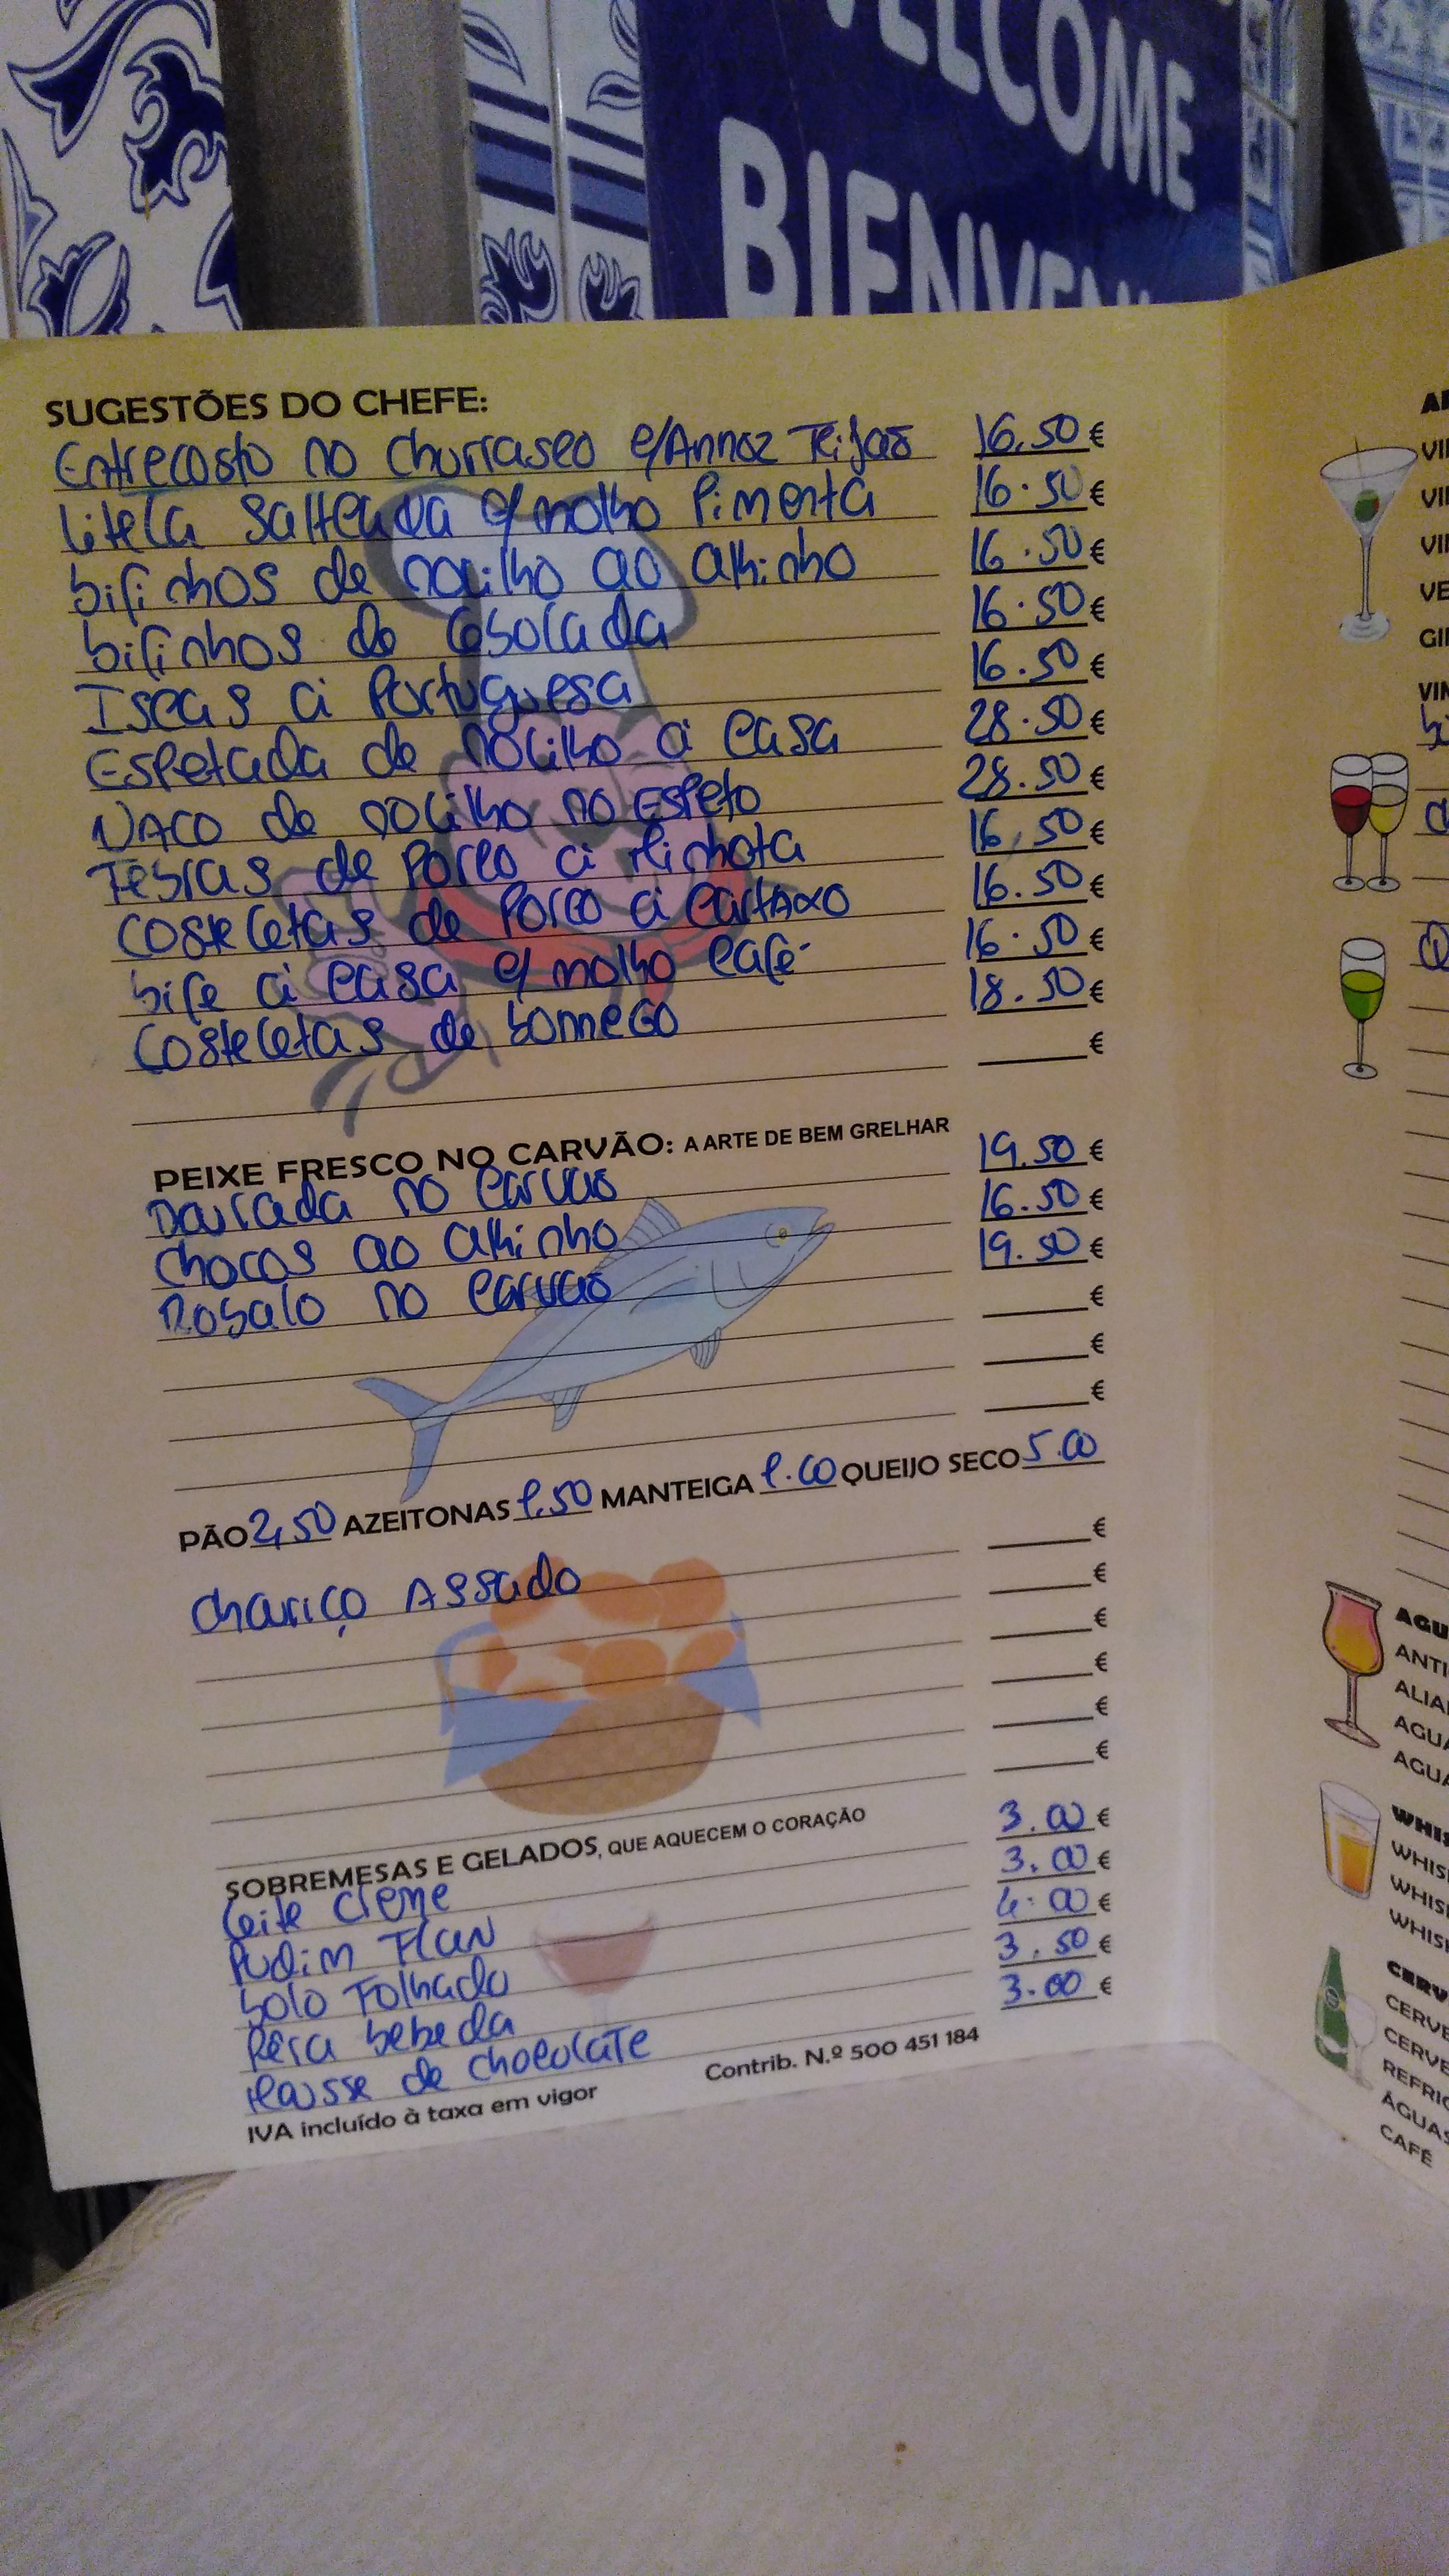 WELCOME
BIENVENI
SUGESTÕES DO CHEFE:
Entrecosto no churrasco c/Arroz Feijão 16.50€
Vitela Salteada c/ molho Pimenta 16.50€
bifinhos de novilho ao alhinho 16.50€
bifinhos de cebolada 16.50€
Iscas à Portuguesa 16.50€
Espetada de novilho à casa 28.50€
NACO de novilho no Espeto 28.50€
Febras de Porco à Minhota 16,50€
Costeletas de Porco à Cartaxo 16.50€
bife à casa c/ molho café 16.50€
Costeletas de borrego 18.50€
€
PEIXE FRESCO NO CARVÃO: A ARTE DE BEM GRELHAR
Dourada no carvão 19.50€
chocos ao alhinho 16.50€
Robalo no carvão 19.50€
€
€
€
PÃO 2,50 AZEITONAS 1.50 MANTEIGA 1.00 QUEIJO SECO 5.00
€
chouriço Assado €
€
€
€
€
SOBREMESAS E GELADOS, QUE AQUECEM O CORAÇÃO
Leite creme 3.00€
Pudim Flan 3.00€
bolo Folhado 4.00€
Pêra bebeda 3.50€
Mousse de chocolate 3.00€
IVA incluído à taxa em vigor Contrib. N.º 500 451 184
VIN
AGU
ANTI
ALIA
AGUA
AGUA
WHIS
WHIS
WHIS
WHIS
CERV
CERVE
CERVE
REFRIG
ÁGUAS
CAFÉ